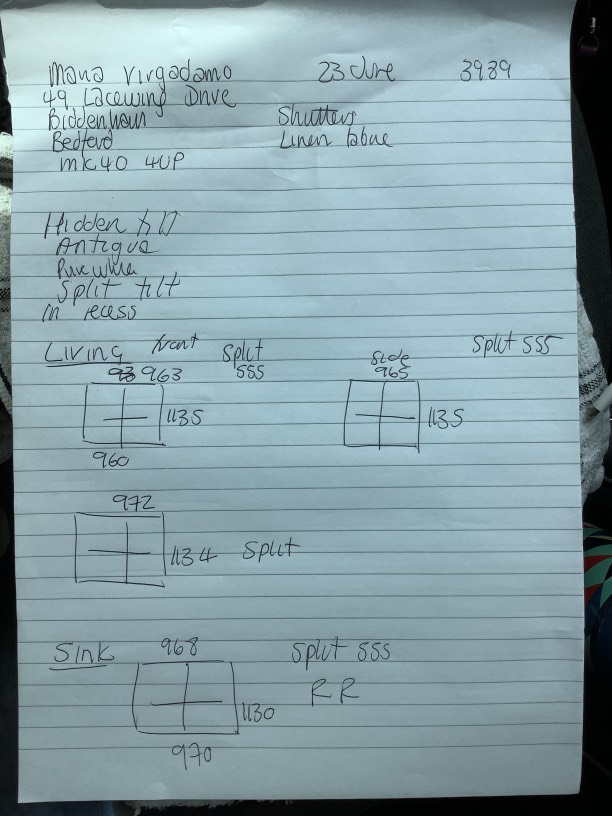 Maria Virgadamo 23 June 3989
49 Lacewing Drive
Biddenham Shutters
Bedford Linen
MK40 4UP
Hidden
Antique
Pure white
Split tilt
in recess
Living front Split 555 Side Split 555
963 965
1135 1135
960
972
1134 Split
Sink 968 Split 555
R R
1130
970